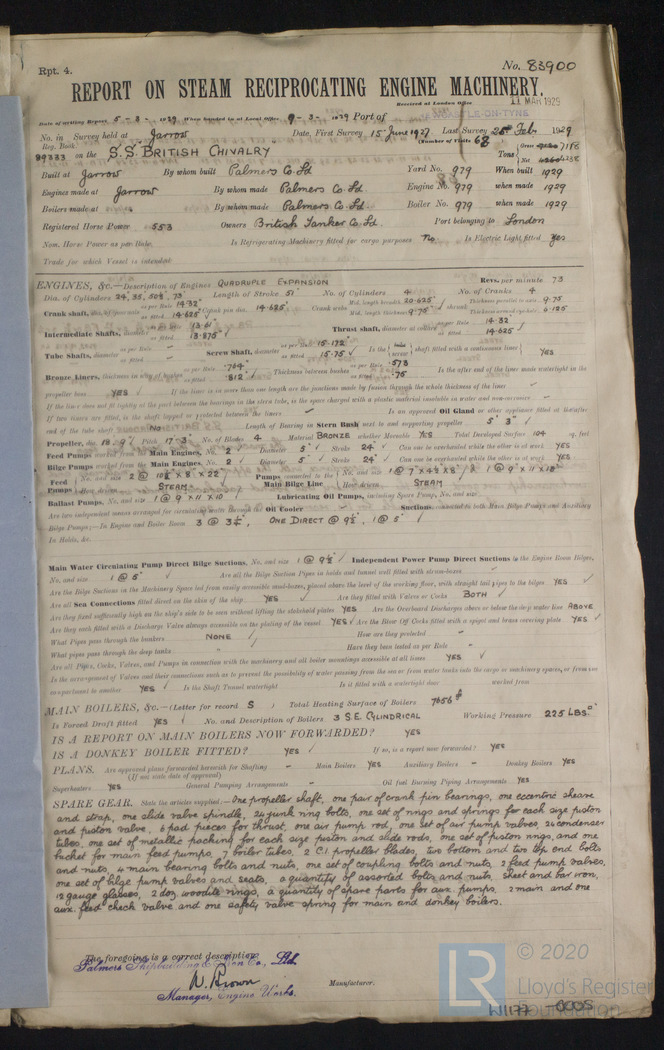 Rpt. 4. No. 83900
REPORT ON STEAM RECIPROCATING ENGINE MACHINERY.
Received at London Office 11 MAR 1929
Date of writing Report 5-3- 1929 When handed in at Local Office 9-3- 1929 Port of NEWCASTLE-ON-TYNE
No. in Reg. Book Survey held at Jarrow Date, First Survey 15 June 1927 Last Survey 25th Feb 1929
(Number of Visits 68
on the S.S. BRITISH CHIVALRY Tons Gross 7118
Built at Jarrow By whom built Palmers Co. Ld Yard No. 979 When built 1929
Engines made at Jarrow By whom made Palmers Co. Ld. Engine No. 979 when made 1929
Boilers made at " By whom made Palmers Co. Ld. Boiler No. 979 when made 1929
Registered Horse Power 553 Owners British Tanker Co. Ld. Port belonging to London
Nom. Horse Power as per Rule Is Refrigerating Machinery fitted for cargo purposes No Is Electric Light fitted Yes
Trade for which Vessel is intended
ENGINES, &c.—Description of Engines QUADRUPLE EXPANSION Revs. per minute 73
Dia. of Cylinders 24, 35, 50½, 73" Length of Stroke 51" No. of Cylinders 4 No. of Cranks 4
Crank shaft, dia. of journals as per Rule 14.32" as fitted 14.625" Crank pin dia. 14.625" Crank webs Mid. length breadth 20.625" Mid. length thickness 9.75" shrunk Thickness parallel to axis 9.75 Thickness around eye-hole 6.125
Intermediate Shafts, diameter as per Rule 13.61" as fitted 13.875" Thrust shaft, diameter at collars as per Rule 14.32" as fitted 14.625"
Tube Shafts, diameter as per Rule as fitted Screw Shaft, diameter as per Rule 15.172 as fitted 15.75 Is the screw shaft fitted with a continuous liner YES
Bronze Liners, thickness in way of bushes as per Rule .764" as fitted .812" Thickness between bushes as per Rule .573 as fitted .75 Is the after end of the liner made watertight in the
propeller boss YES If the liner is in more than one length are the junctions made by fusion through the whole thickness of the liner -
If the liner does not fit tightly at the part between the bearings in the stern tube, is the space charged with a plastic material insoluble in water and non-corrosive -
If two liners are fitted, is the shaft lapped or protected between the liners - Is an approved Oil Gland or other appliance fitted at the after
end of the tube shaft No Length of Bearing in Stern Bush next to and supporting propeller 5' 3"
Propeller, dia. 18'-9" Pitch 17'-3" No. of Blades 4 Material BRONZE whether Moveable YES Total Developed Surface 104 sq. feet
Feed Pumps worked from the Main Engines, No. 2 Diameter 5" Stroke 24" Can one be overhauled while the other is at work YES
Bilge Pumps worked from the Main Engines, No. 2 Diameter 5" Stroke 24" Can one be overhauled while the other is at work YES
Feed Pumps No. and size 2 @ 10½" x 8" x 22" How driven STEAM Pumps connected to the Main Bilge Line No. and size How driven STEAM
Ballast Pumps, No. and size 1 @ 9 x 11 x 10" Lubricating Oil Pumps, including Spare Pump, No. and size
Are two independent means arranged for circulating water through the Oil Cooler Suctions, connected to both Main Bilge Pumps and Auxiliary
Bilge Pumps;—In Engine and Boiler Room 3 @ 3½", ONE DIRECT @ 9½", 1 @ 5"
In Holds, &c.
Main Water Circulating Pump Direct Bilge Suctions, No. and size 1 @ 9½" Independent Power Pump Direct Suctions to the Engine Room Bilges,
No. and size 1 @ 5" Are all the Bilge Suction Pipes in holds and tunnel well fitted with strum-boxes
Are the Bilge Suctions in the Machinery Space led from easily accessible mud-boxes, placed above the level of the working floor, with straight tail pipes to the bilges YES
Are all Sea Connections fitted direct on the skin of the ship YES Are they fitted with Valves or Cocks BOTH
Are they fixed sufficiently high on the ship's side to be seen without lifting the stokehold plates YES Are the Overboard Discharges above or below the deep water line ABOVE
Are they each fitted with a Discharge Valve always accessible on the plating of the vessel YES Are the Blow Off Cocks fitted with a spigot and brass covering plate YES
What Pipes pass through the bunkers NONE How are they protected -
What pipes pass through the deep tanks " Have they been tested as per Rule -
Are all Pipes, Cocks, Valves, and Pumps in connection with the machinery and all boiler mountings accessible at all times YES
Is the arrangement of Valves and their connections such as to prevent the possibility of water passing from the sea or from water tanks into the cargo or machinery spaces, or from one
compartment to another YES Is the Shaft Tunnel watertight Is it fitted with a watertight door worked from
MAIN BOILERS, &c.—(Letter for record S ) Total Heating Surface of Boilers 7656
Is Forced Draft fitted YES No. and Description of Boilers 3 S.E. CYLINDRICAL Working Pressure 225 LBS.
IS A REPORT ON MAIN BOILERS NOW FORWARDED? YES
IS A DONKEY BOILER FITTED? YES If so, is a report now forwarded? YES
PLANS. Are approved plans forwarded herewith for Shafting - Main Boilers YES Auxiliary Boilers - Donkey Boilers YES
(If not state date of approval)
Superheaters YES General Pumping Arrangements - Oil fuel Burning Piping Arrangements YES
SPARE GEAR. State the articles supplied:—One propeller shaft, one pair of crank pin bearings, one eccentric sheave
and strap, one slide valve spindle, 24 junk ring bolts, one set of rings and springs for each size piston
and piston valve, 6 pad pieces for thrust, one air pump rod, one set of air pump valves, 24 condenser
tubes, one set of metallic packing for each size piston and slide rods, one set of piston rings, and one
bucket for main feed pumps, 7 boiler tubes, 2 C.I. propeller blades, two bottom and two top end bolts
and nuts, 4 main bearing bolts and nuts, one set of coupling bolts and nuts, 2 feed pump valves,
one set of bilge pump valves and seats, a quantity of assorted bolts and nuts, sheet and bar iron,
12 gauge glasses, 2 doz. woodite rings, a quantity of spare parts for aux. pumps, 2 main and one
aux. feed check valve and one safety valve spring for main and donkey boilers.
The foregoing is a correct description,
Palmers Shipbuilding & Iron Co., Ltd.
W. Brown Manufacturer.
Manager, Engine Works.
LR © 2020
Lloyd's Register
Foundation
W1177-0005